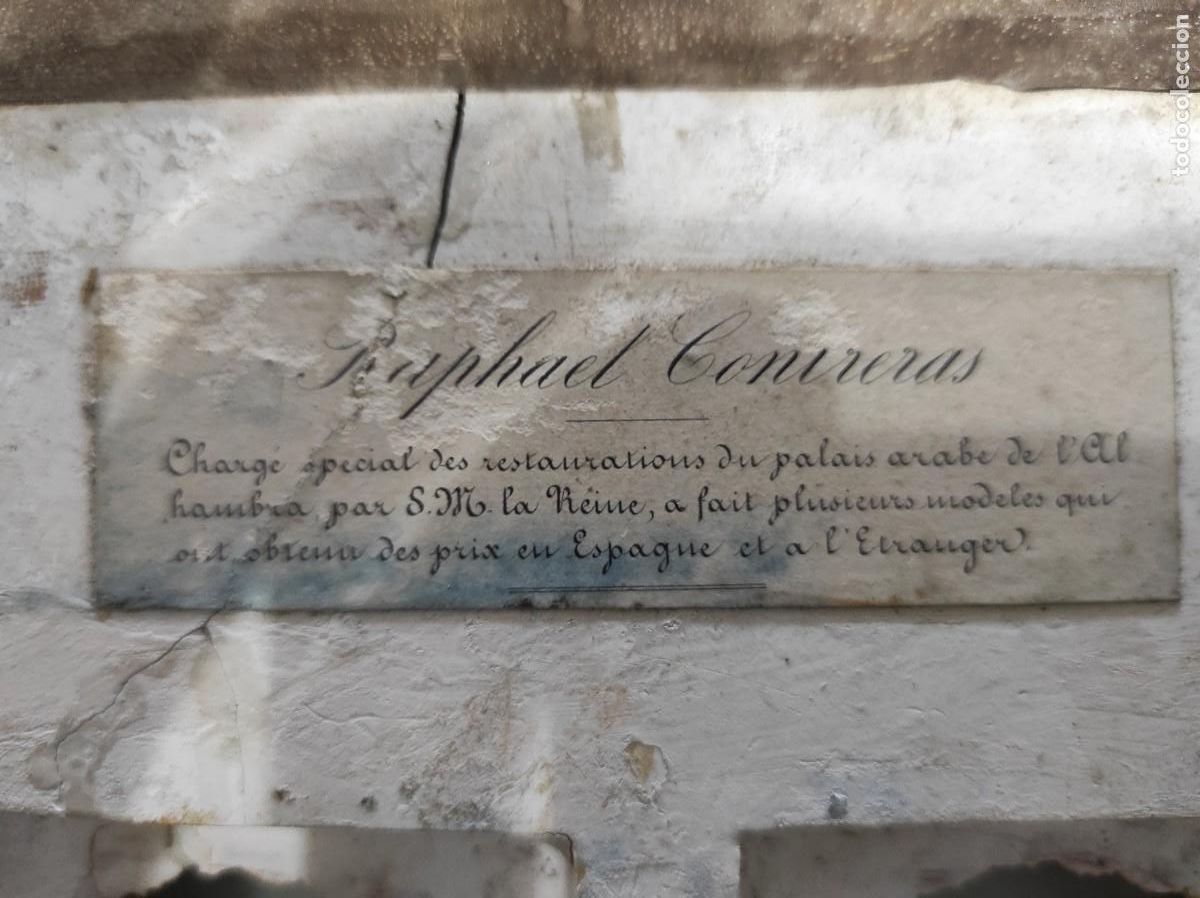 Raphael Contreras
Chargé special des restaurations du palais arabe de l'Al
hambra, par S.M. la Reine, a fait plusieurs modeles qui
ont obtenu des prix en Espagne et a l'Etranger.
todocoleccion